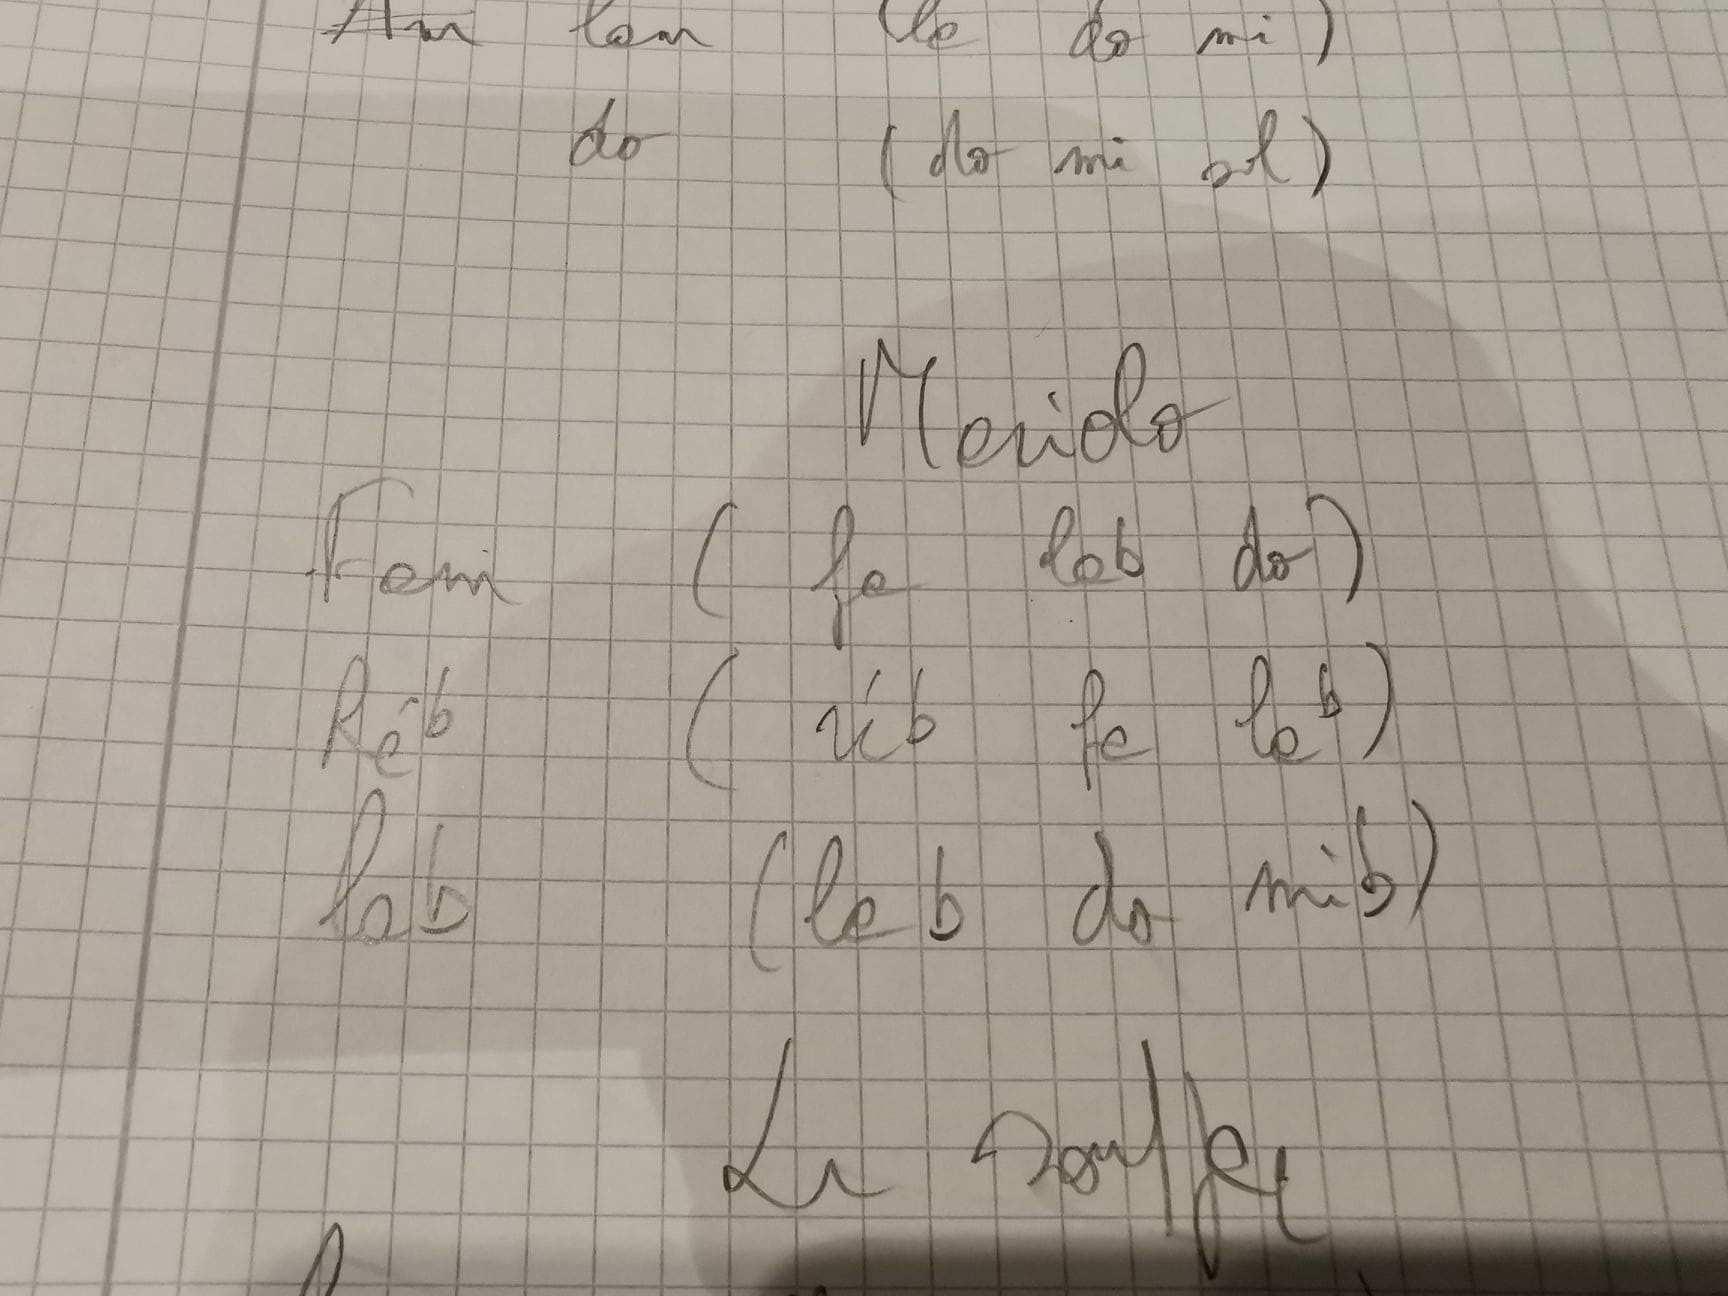 lam (la do mi)
do (do mi sol)
Merido
Fam (fa lab do)
Réb (réb fa lab)
lab (lab do mib)